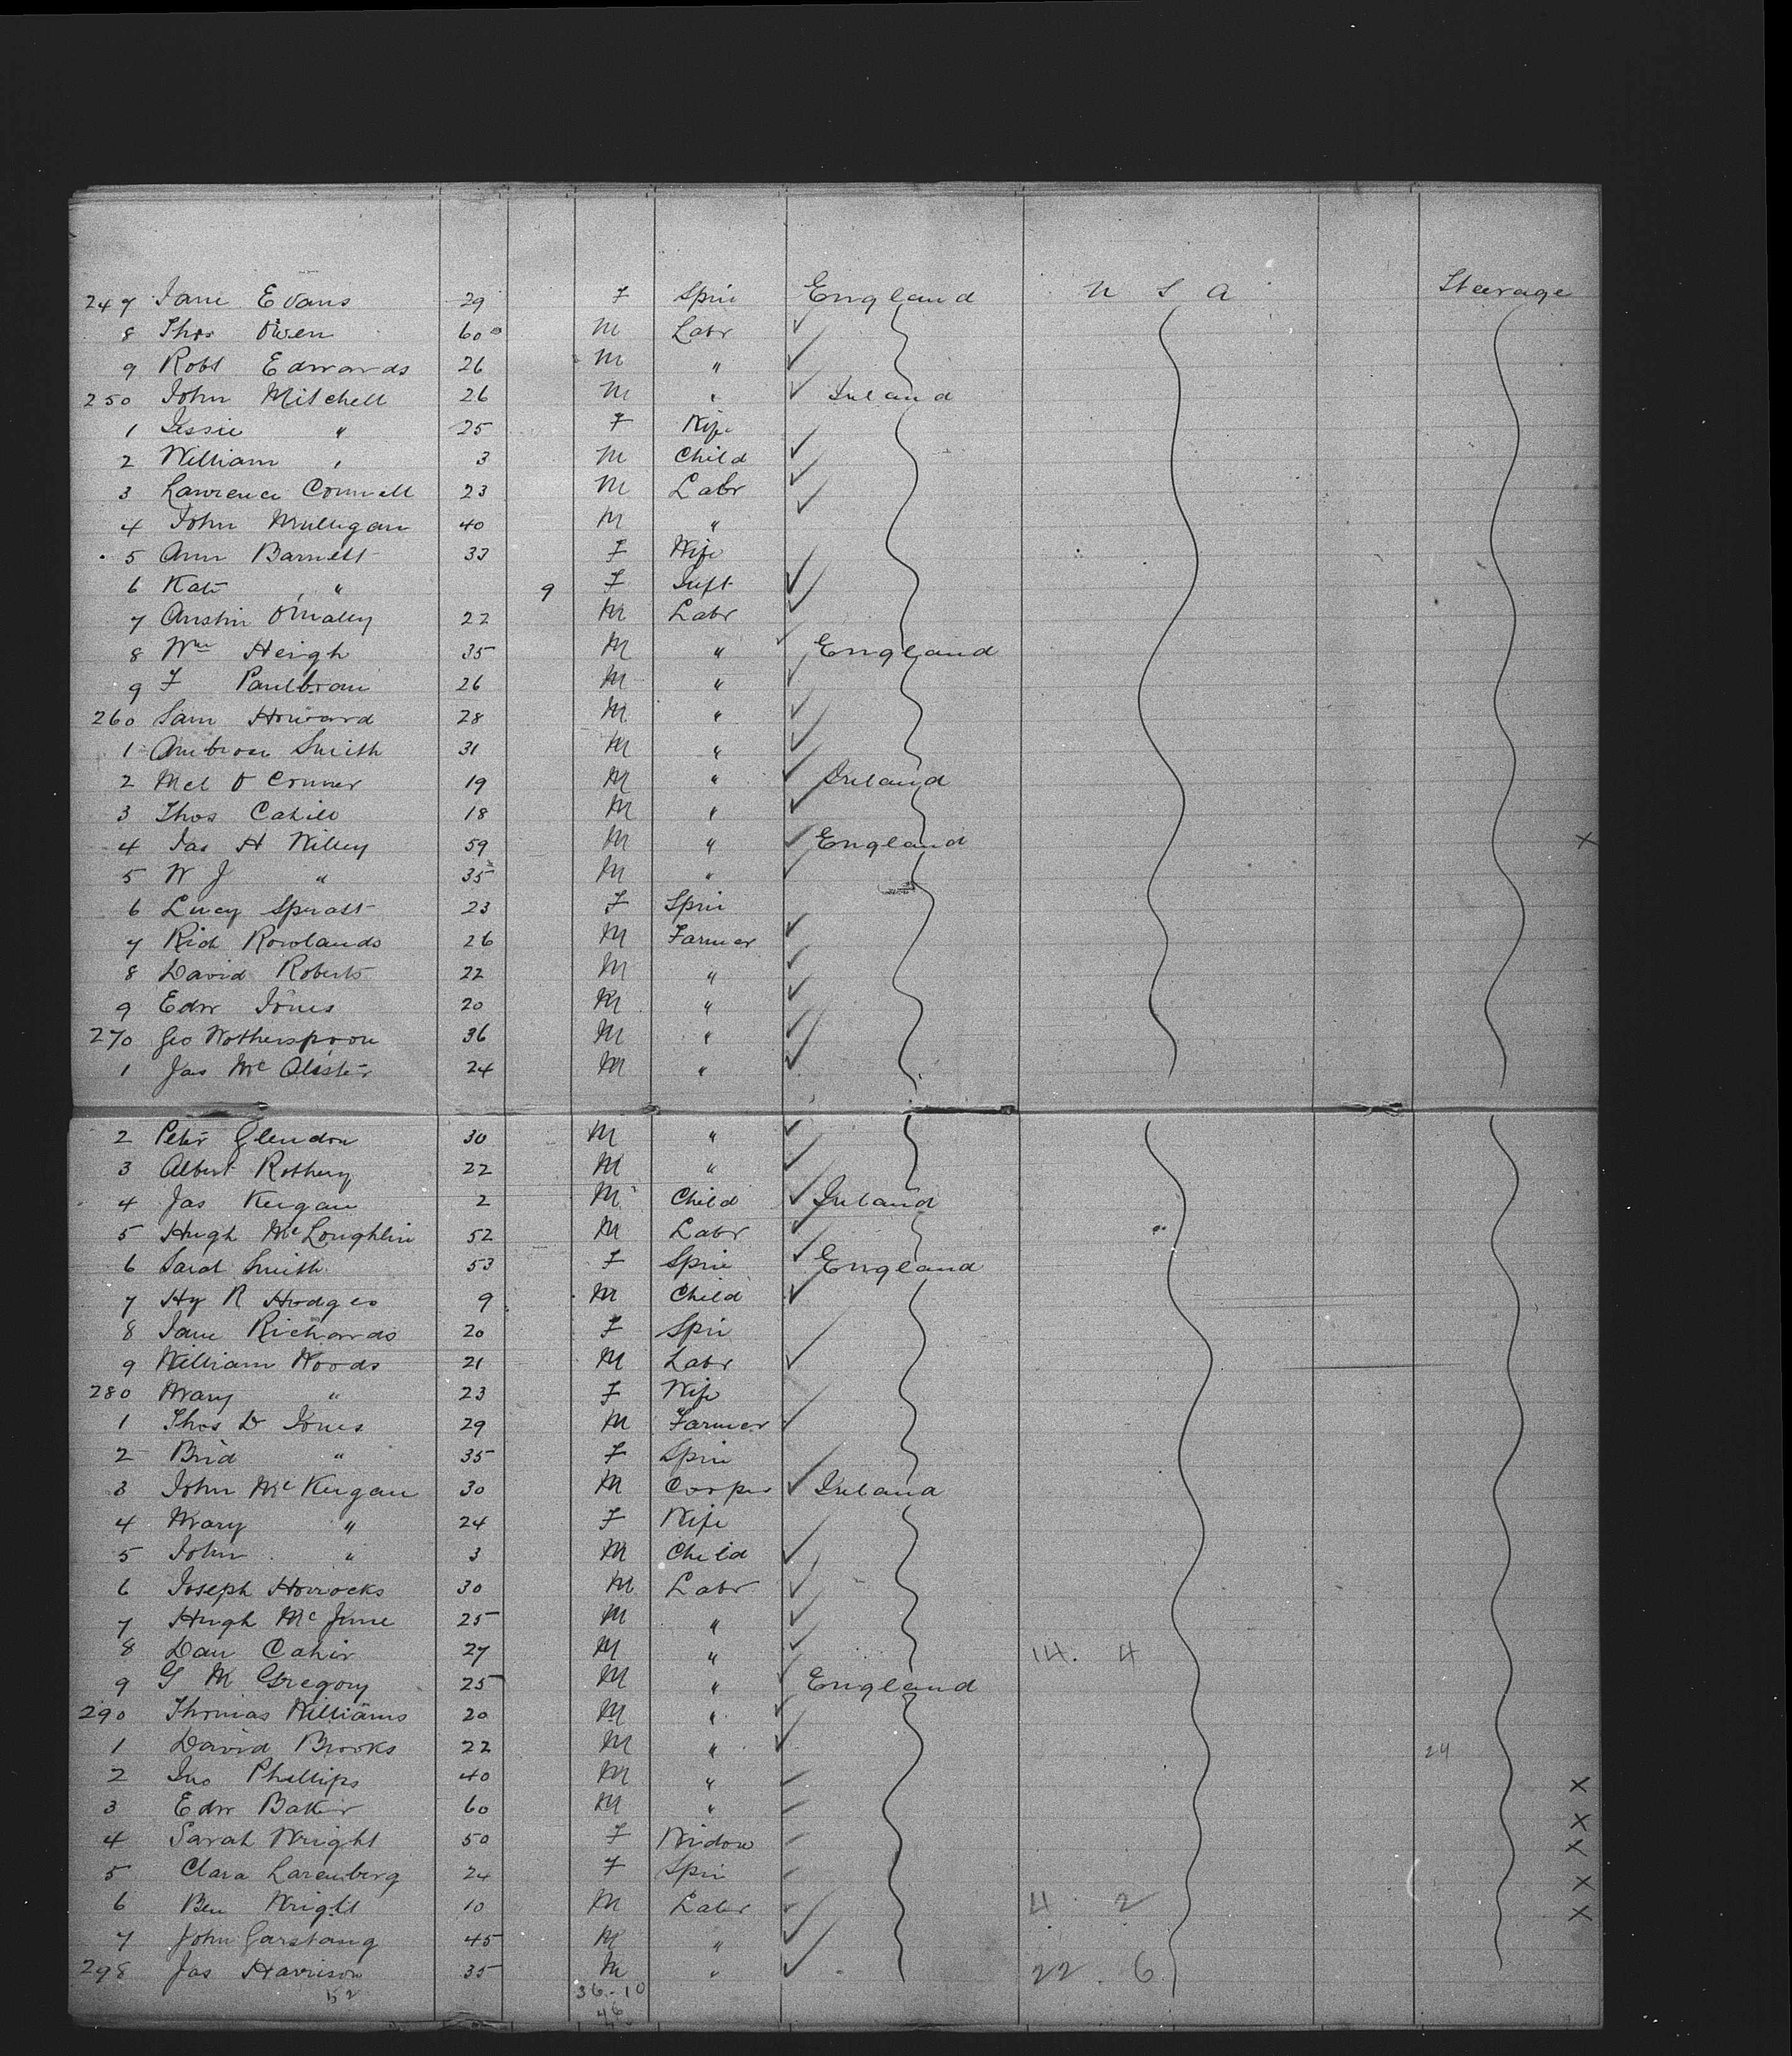 247 Jane Evans 29 F Spin England U S A Steerage
8 Thos Owen 60 M Labr
9 Robt Edwards 26 M "
250 John Mitchell 26 M " Ireland
1 Jessie " 25 F Wife
2 William " 3 M Child
3 Lawrence Connell 23 M Labr
4 John Mulligan 40 M "
5 Ann Barnett 33 F Wife
6 Kate " 9 F Inft
7 Austin O'Malley 22 M Labr
8 Wm Heigh 35 M " England
9 F 26 M "
260 Sam Howard 28 M "
1 Ambrose Smith 31 M "
2 Mcl O Conner 19 M " Ireland
3 Thos Cahill 18 M "
4 Jas H Willey 59 M " England X
5 W J " 35 M "
6 Lucy Spratt 23 F Spin
7 Rich Rowlands 26 M Farmer
8 David Roberts 22 M "
9 Edw Jones 20 M "
270 Geo Wotherspoon 36 M "
1 Jas McAlister 24 M "
2 Peter Glendon 30 M "
3 Albert Rothery 22 M "
4 Jas Keegan 2 M Child Ireland
5 Hugh McLoughlin 52 M Labr
6 Sarah Smith 53 F Spin England
7 Hy R Hodges 9 M Child
8 Jane Richards 20 F Spin
9 William Woods 21 M Labr
280 Mary " 23 F Wife
1 Thos D Jones 29 M Farmer
2 Brid " 35 F Spin
3 John McKeegan 30 M Ireland
4 Mary " 24 F Wife
5 John " 3 M Child
6 Joseph Horrocks 30 M Labr
7 Hugh Mc 25 M "
8 Dan Cahir 27 M " 14. 4
9 G M Gregory 25 M " England
290 Thomas Williams 20 M "
1 David Brooks 22 M " 24
2 Jno Phillips 40 M " X
3 Edw Baker 60 M " X
4 Sarah Wright 50 F Widow X
5 Clara Larenberg 24 F Spin X
6 Ben Wright 10 M Labr 4 2 X
7 John Garstang 45 M "
298 Jas Harrison 35 M " 22. 6
52 36-10
46